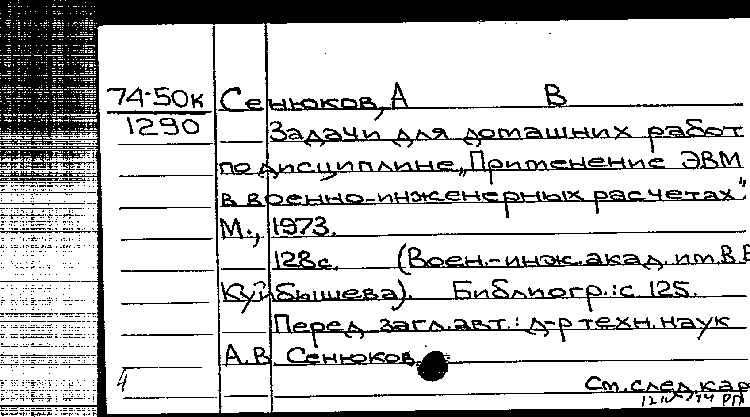 74-50к Сенюков, А В
1290 Задачи для домашних работ
по дисциплине „Применение ЭВМ
в военно-инженерных расчетах".
М., 1973.
128с. (Воен.-инж. акад. им. В.В
Куйбышева). Библиогр.: с. 125.
Перед загл. авт.: д-р техн. наук
А.В. Сенюков
4 См. след. кар